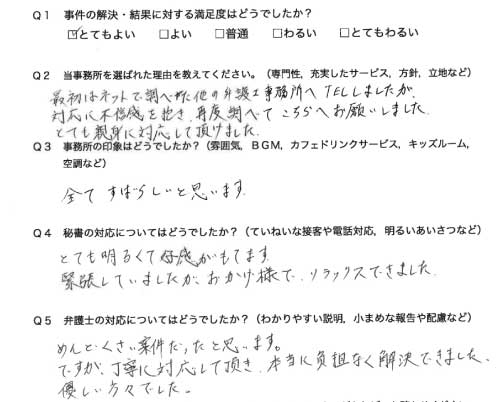 Q1 事件の解決・結果に対する満足度はどうでしたか？
☑とてもよい □よい □普通 □わるい □とてもわるい
Q2 当事務所を選ばれた理由を教えてください。（専門性，充実したサービス，方針，立地など）
最初はネットで調べた他の弁護士事務所へTELしましたが、
対応に不信感を抱き、再度調べてこちらへお願いしました。
とても親身に対応して頂けました。
Q3 事務所の印象はどうでしたか？（雰囲気，ＢＧＭ，カフェドリンクサービス，キッズルーム，
空調など）
全てすばらしいと思います。
Q4 秘書の対応についてはどうでしたか？（ていねいな接客や電話対応，明るいあいさつなど）
とても明るくて好感がもてます。
緊張していましたが、おかげ様で、リラックスできました。
Q5 弁護士の対応についてはどうでしたか？（わかりやすい説明，小まめな報告や配慮など）
めんどくさい案件だったと思います。
ですが、丁寧に対応して頂き、本当に負担なく解決できました。
優しい方々でした。